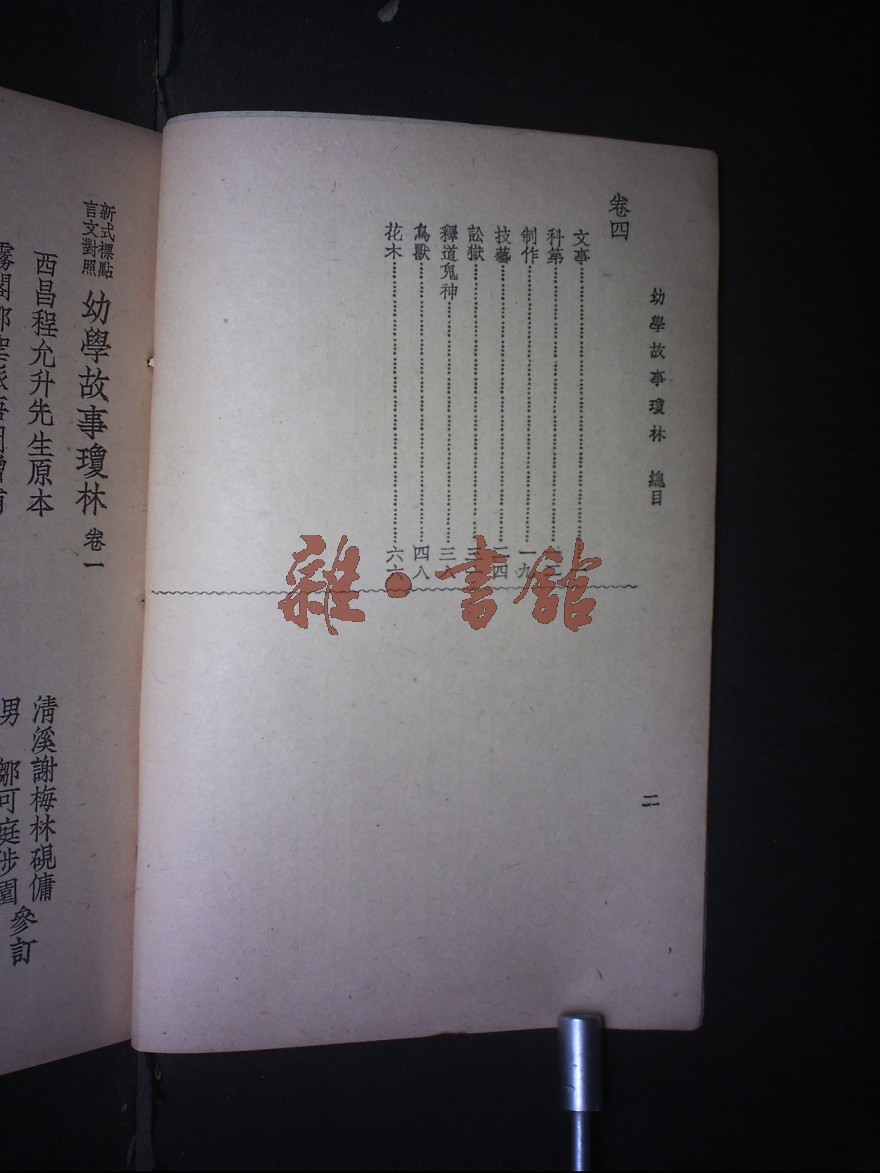 幼學故事瓊林 總目
二
卷四
文事
科第
制作 一九
技藝 二四
訟獄
釋道鬼神
鳥獸 四八
花木 六六
雜·書館
新式標點
言文對照
幼學故事瓊林 卷一
西昌程允升先生原本
清溪謝梅林硯傭
男 鄒可庭涉園
參訂